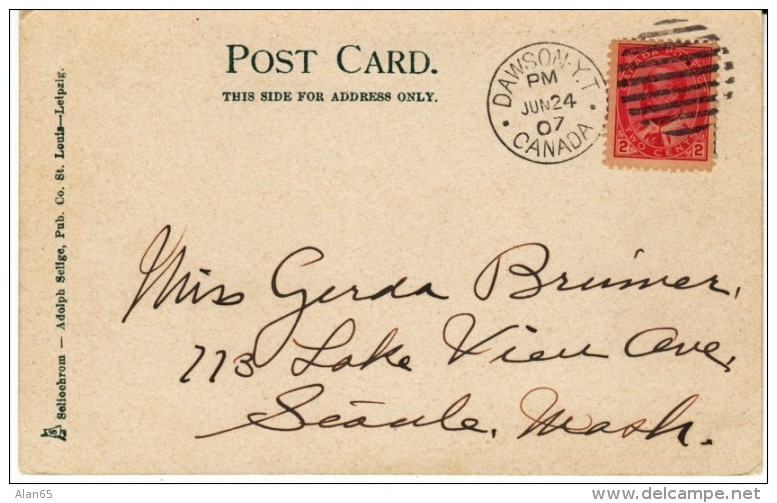 POST CARD.
THIS SIDE FOR ADDRESS ONLY.
DAWSON-Y.T.
PM
JUN 24
07
CANADA
CANADA POSTAGE
2 TWO CENTS 2
Seliochrom — Adolph Selige, Pub. Co. St. Louis—Leipzig.
Miss Gerda Brimer,
773 Lake View Ave,
Seattle, Wash.
Alan65
http://www.delcampe.net